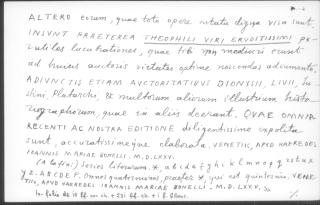 ALTERO eorum, quae toto opere notatu digna visa sunt.
INSUNT PRAETEREA THEOPHILI VIRI ERUDITISSIMI pe-
rutiles lucubrationes, quae tibi non mediocri erunt
ad huius auctoris virtutes optime noscendas adiumento,
ADIUNCTIS ETIAM AUCTORITATIBUS DIONISII, LIVII, Iu
stini, Plutarchi, & multorum aliorum illustrium histo
riographorum, quae in aliis deerant. QUAE OMNIA
RECENTI AC NOSTRA EDITIONE diligentissime expolita
sunt, accuratissimeque elaborata. VENETIIS, APUD HAEREDES
IOANNIS MARIAE BONELLI, M.D.LXXV.
(A la fin:) Series literarum. * a b c d e f g h i k l m n o p q r s t u x
y z. A B C D E F. Omnes quaterniones, praeter *, qui est quinternio. VENE
TIIS, APUD HAEREDES IOANNIS MARIAE BONELLI, M.D.LXXV.
In-folio de 10 ff. n. ch. + 231 ff. ch. + 1 f. blanc.